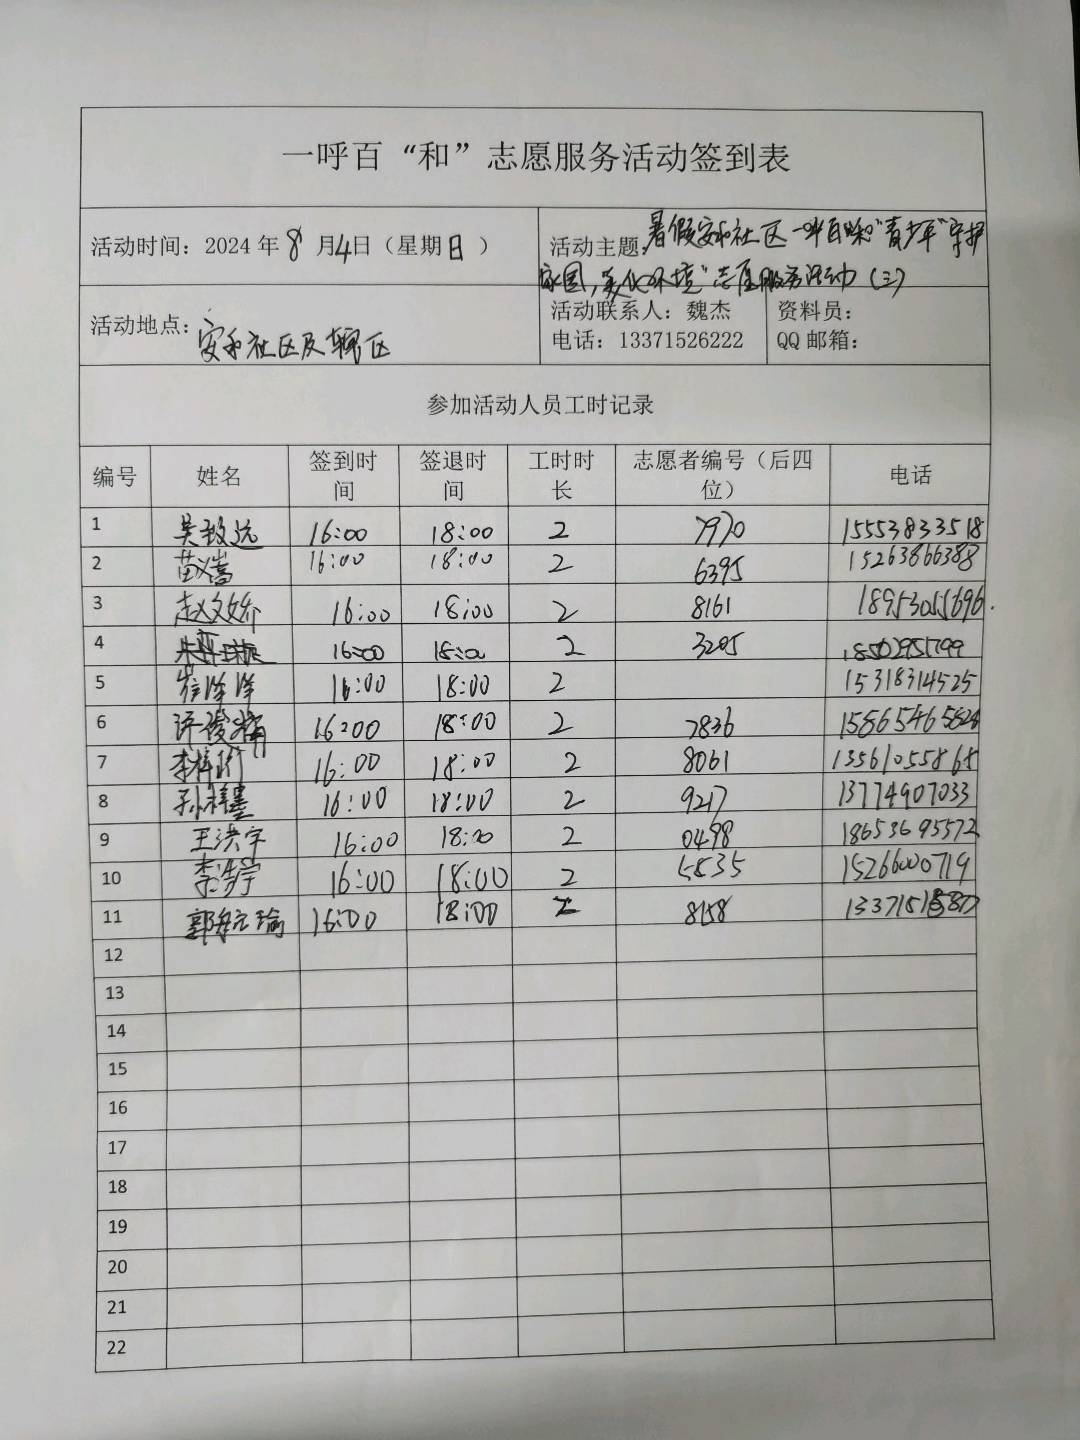 一呼百“和”志愿服务活动签到表
活动时间：2024年8月4日（星期日）
活动主题：暑假安和社区一呼百和“青少年”守护
家园，美化环境”志愿服务活动（三）
活动地点：安和社区及辖区
活动联系人：魏杰 资料员：
电话：13371526222 QQ邮箱：
参加活动人员工时记录
编号 姓名 签到时间 签退时间 工时时长 志愿者编号（后四位） 电话
1 吴致远 16:00 18:00 2 7970 15553833518
2 苗嵩 16:00 18:00 2 6395 15263866388
3 赵文娇 16:00 18:00 2 8161 18953055696
4 16:00 18:00 2 3205 18502951799
5 崔泽洋 16:00 18:00 2 15318314525
6 许俊楠 16:00 18:00 2 7836
7 李梓衍 16:00 18:00 2 8061 13561055865
8 孙梓墨 16:00 18:00 2 9217 13774907033
9 王洪宇 16:00 18:00 2 0498 18653695572
10 李浩宇 16:00 18:00 2 5835 15266000719
11 郭航瑜 16:00 18:00 2 8158
12
13
14
15
16
17
18
19
20
21
22